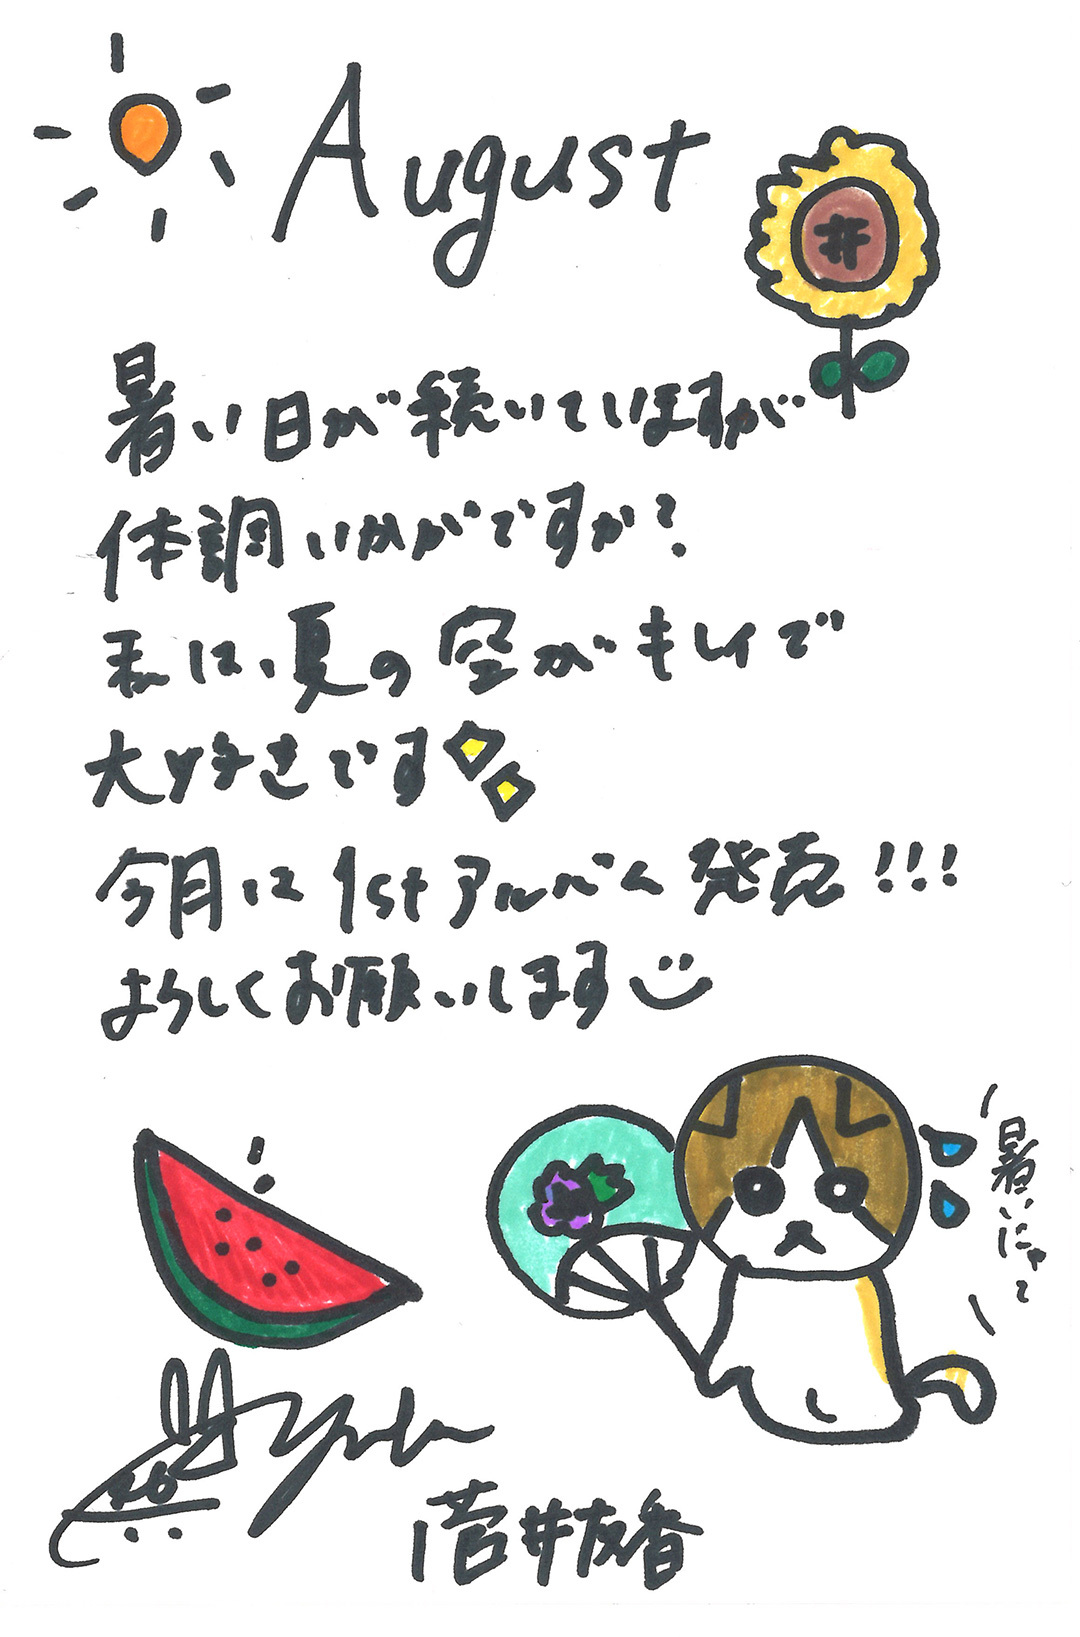 August
暑い日が続いていますが
体調いかがですか？
私は、夏の空がキレイで
大好きです
今月は1stアルバム発売!!!
よろしくお願いします
暑いにゃて
菅井友香